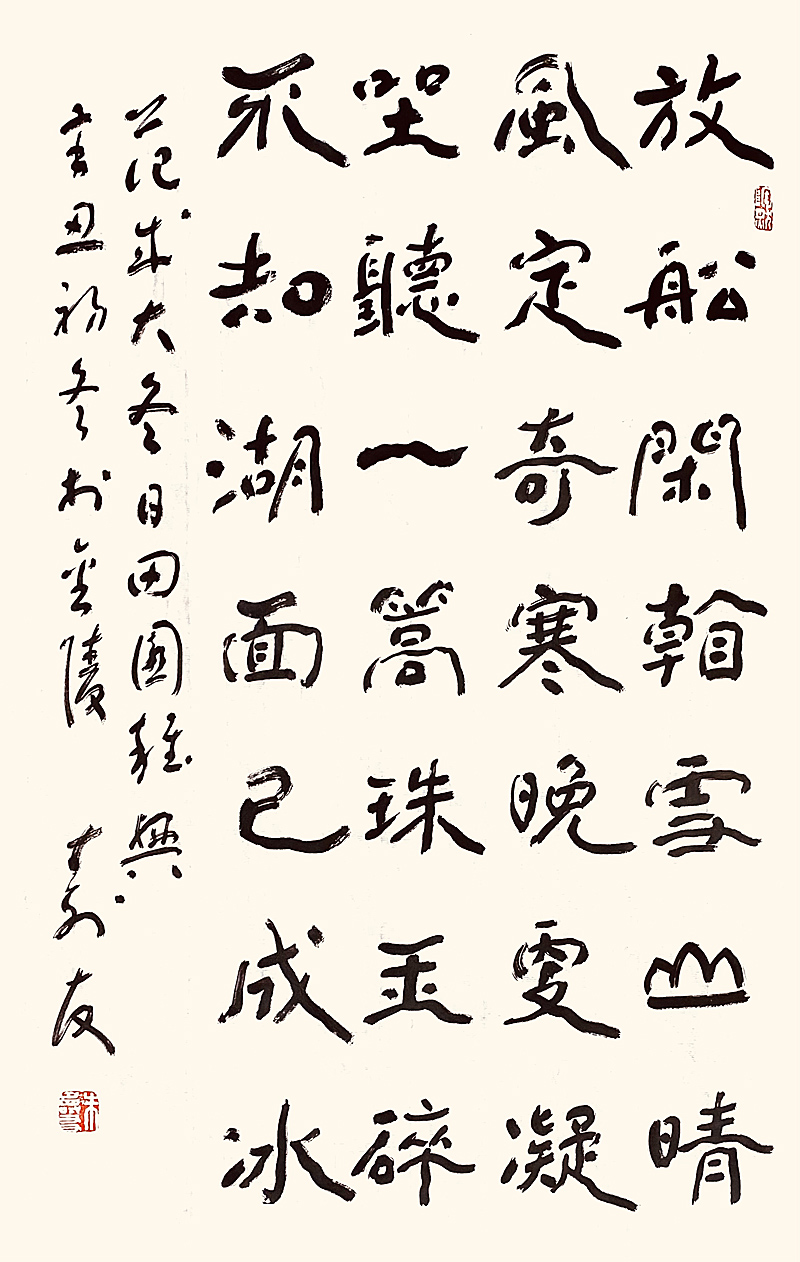 放船閑看雪山晴
風定奇寒晚更凝
坐聽一篙珠玉碎
不知湖面已成冰
范成大冬日田園雜興
辛丑初冬於金陵 壽友
朱壽友